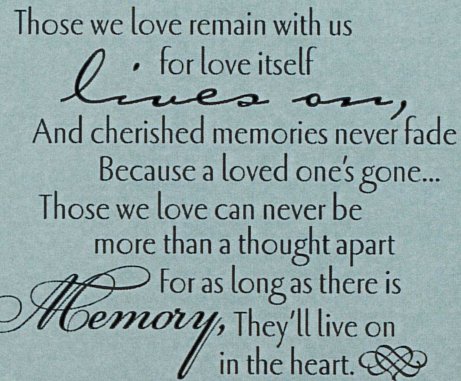 Those we love remain with us
for love itself
lives on,
And cherished memories never fade
Because a loved one's gone...
Those we love can never be
more than a thought apart
For as long as there is
Memory, They'll live on
in the heart.